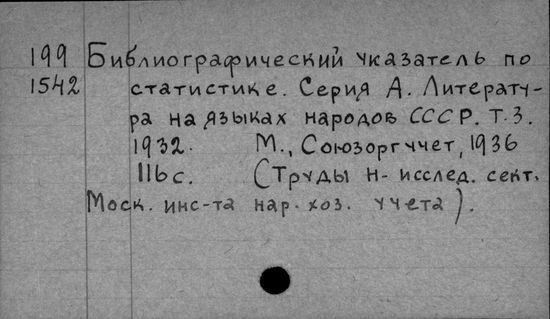 199 Библиографический указатель по
1542 статистике. Серия А. Литерату-
ра на языках народов СССР. Т.3.
1932. М., Союзоргучет, 1936
116 с. (Труды н-исслед. сект.
Моск. инс-та нар. хоз. учета).